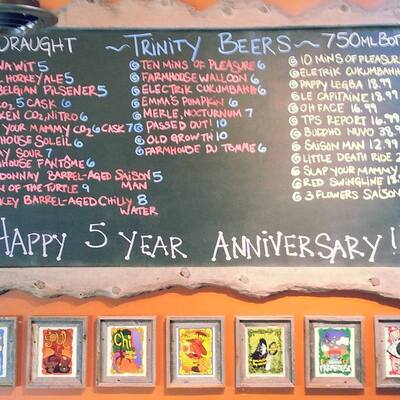 DRAUGHT
WIT 5
HORKEY ALE 5
BELGIAN PILSENER 5
CO2 5 CASK 6
KEN CO2, NITRO 6
YOUR MAMMY CO2 6 CASK 7
HOUSE SOLEIL 6
Y SOUR 7
HOUSE FANTÔME 6
DONNAY BARREL-AGED SAISON 5
ON OF THE TURTLE 9 MAN
KEY BARREL-AGED CHILLY 8
WATER
~TRINITY BEERS~
TEN MINS OF PLEASURE 6
FARMHOUSE WALLOON 6
ELECTRIK CUKUMBAHN 6
EMMA'S PUMPKIN 6
MERLE, NOCTURNUM 7
PASSED OUT! 10
OLD GROWTH 10
FARMHOUSE DU TOMME 6
750ML BOT
10 MINS OF PLEASURE
ELETRIK CUKUMBAHN
PAPPY LEGBA 18.99
LE CAPITAINE 18.99
OH FACE 16.99
TPS REPORT 16.99
BUDDHO NUVO 38.9
SAISON MAN 12.99
LITTLE DEATH RIDE 2
SLAP YOUR MAMMY
RED SWINGLINE 18.
3 FLOWERS SAISON
HAPPY 5 YEAR ANNIVERSARY!!
SOUL
Chi
FARMHOUSE